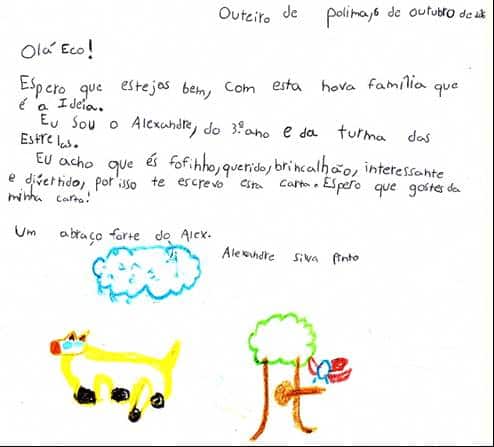 Outeiro de polima, 6 de outubro de
Olá Eco!
Espero que estejas bem, com esta nova família que
é a Ideia.
Eu Sou o Alexandre, do 3.º ano e da turma das
Estrelas.
Eu acho que és fofinho, querido, brincalhão, interessante
e divertido, por isso te escrevo esta carta. Espero que gostes da
minha carta!
Um abraço forte do Alex.
Alexandre Silva Pinto